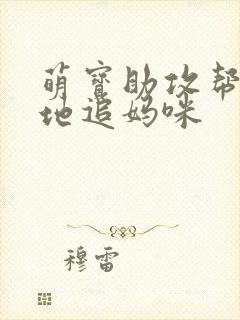 萌宝助攻帮
地追妈咪
穆雷